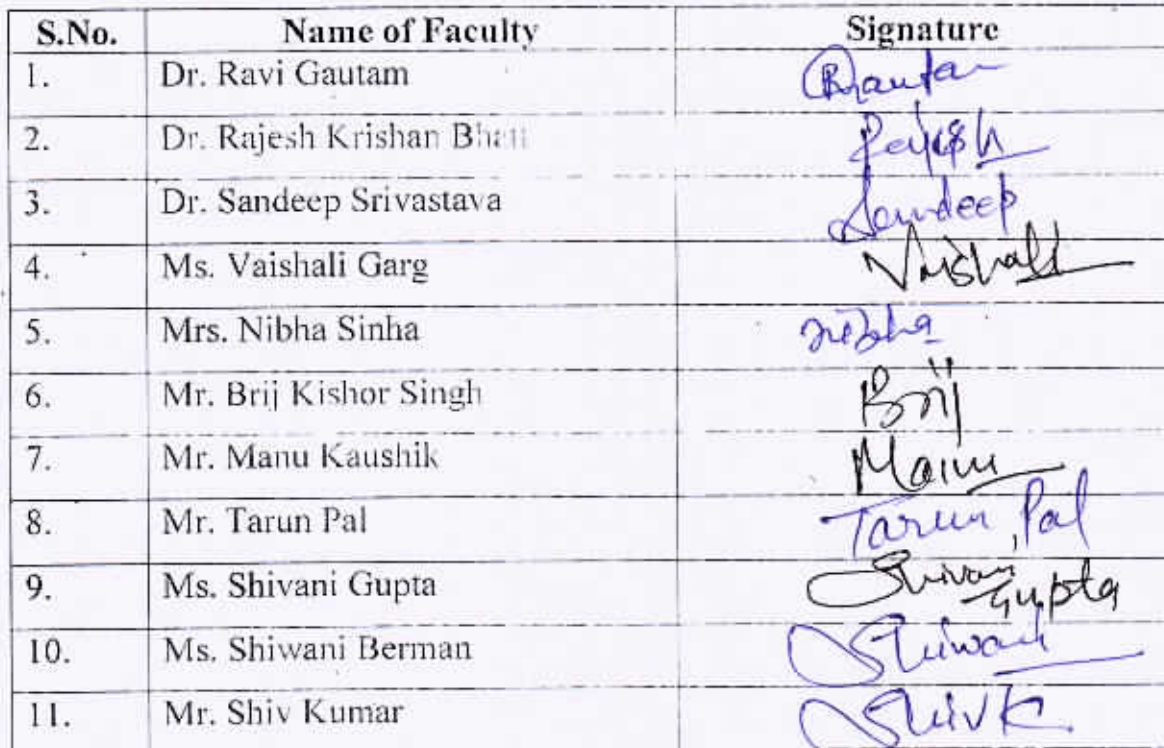 S.No. Name of Faculty Signature
1. Dr. Ravi Gautam RGautam
2. Dr. Rajesh Krishan Bhatt Rajesh
3. Dr. Sandeep Srivastava Sandeep
4. Ms. Vaishali Garg Vaishali
5. Mrs. Nibha Sinha nibha
6. Mr. Brij Kishor Singh Brij
7. Mr. Manu Kaushik Manu
8. Mr. Tarun Pal Tarun Pal
9. Ms. Shivani Gupta Shivani Gupta
10. Ms. Shiwani Berman Shiwani
11. Mr. Shiv Kumar Shiv K